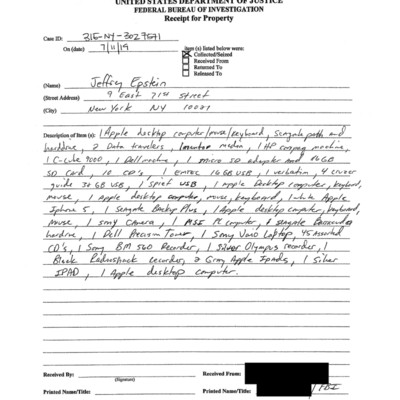 UNITED STATES DEPARTMENT OF JUSTICE
FEDERAL BUREAU OF INVESTIGATION
Receipt for Property
Case ID: 31E-NY-3027571
On (date) 7/11/19
item(s) listed below were:
Collected/Seized
Received From
Returned To
Released To
(Name) Jeffrey Epstein
(Street Address) 9 East 71st Street
(City) New York NY 10021
Description of Item(s): 1 Apple desktop computer/mouse/keyboard, Seagate and
harddrive, 2 Data travelers, 1 media, 1 HP compaq machine,
1 C-cube 9000, 1 Dell machine, 1 micro SD adapter and 16GB
SD card, 10 CD's, 1 Emtec 16GB USB, 1 verbatim, 4 cruzer
guide 30 GB USB, 1 USB, 1 apple Desktop computer, keyboard,
mouse, 1 apple desktop computer, mouse, keyboard, 1 white Apple
Iphone 5, 1 Seagate Backup Plus, 1 Apple desktop computer, keyboard,
mouse, 1 Sony Camera, 1 MSI PC computer, 1 Seagate Barracuda
hardrive, 1 Dell Precision Tower, 1 Sony Vaio Laptop, 45 assorted
CD's, 1 Sony BM 560 Recorder, 1 Silver Olympus recorder, 1
Black Radioshack recorder, 2 Gray Apple Ipads, 1 Silver
IPAD, 1 Apple desktop computer.
Received By:
(Signature)
Received From:
Printed Name/Title:
Printed Name/Title: /FBI